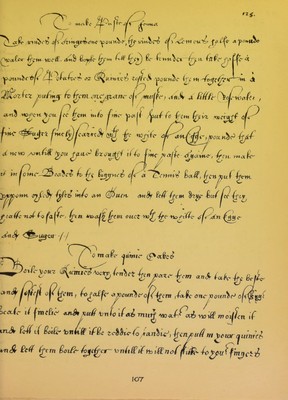 125.
To make Paste of Genua
Take rindes of Oringes one pounde, the rindes of Lemons halfe a pounde
water them well. and boyle them till they be tender then take halfe a
pounde of Quinces boyled pound them together, in a
Morter puting to them one graine of muske, and a little Rosewater,
and when you see them into fine past. put to them their weight of
fine Suger finely searced the white of an Egge, pounde that
a new untill you have brought it to fine paste againe, then make
it in some to the bignes of a Tennis ball, then put them
uppon tyles into an Oven and lett them drye but so they
not to faste. then wash them over with the white of an Egge
and Sugger //
To make quince Cakes
Boile your Quinces very tender then pare them and take the beste
and softest of them, to halfe a pounde of them, take one pounde of Sugar
beate it smale and putt unto it as much water as will moisten it
and lett it boile untill it be reddie to candie, then putt in your quinces
and lett them boile together untill it will not sticke to your fingers
107